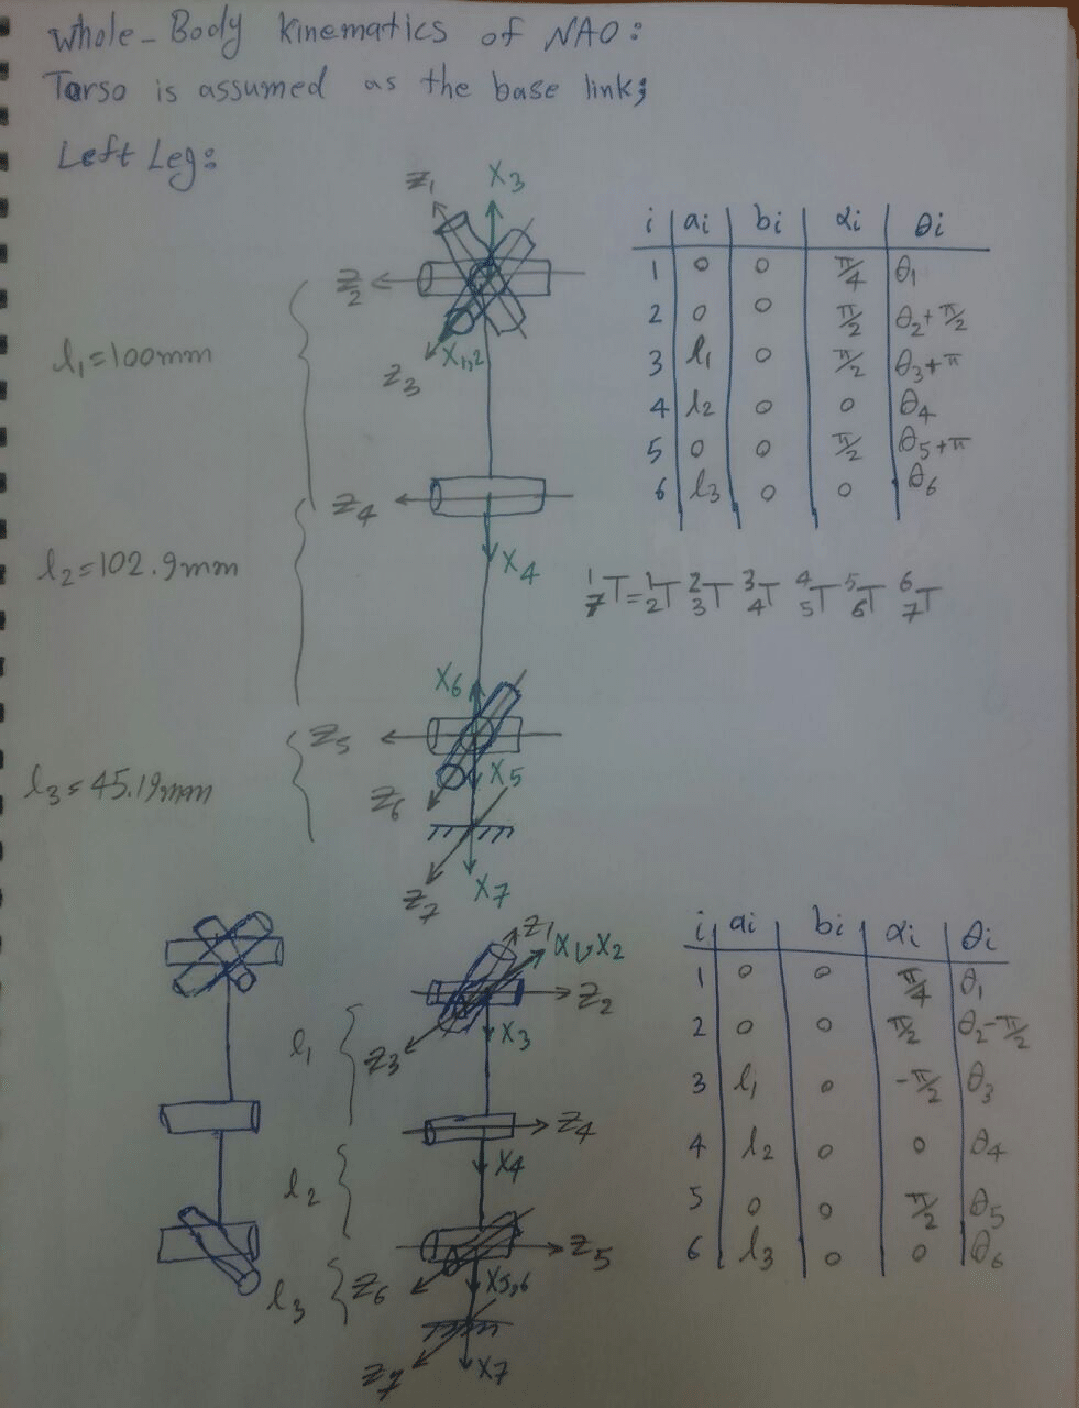 Whole-Body Kinematics of NAO:
Torso is assumed as the base link;
Left Leg:
Z1 X3
Z2
X1,2
Z3
l1=100mm
Z4
X4
l2=102.9mm
X6
Z5
X5
Z6
l3=45.19mm
Z7 X7
i ai bi αi θi
1 0 0 π/4 θ1
2 0 0 π/2 θ2+π/2
3 l1 0 π/2 θ3+π
4 l2 0 0 θ4
5 0 0 π/2 θ5+π
6 l3 0 0 θ6
¹₇T=¹₂T ²₃T ³₄T ⁴₅T ⁵₆T ⁶₇T
Z1
X1,X2
Z2
X3
Z3
l1
Z4
X4
l2
Z5
X5,6
Z6
l3
Z7 X7
i ai bi αi θi
1 0 0 π/4 θ1
2 0 0 π/2 θ2-π/2
3 l1 0 -π/2 θ3
4 l2 0 0 θ4
5 0 0 π/2 θ5
6 l3 0 0 θ6